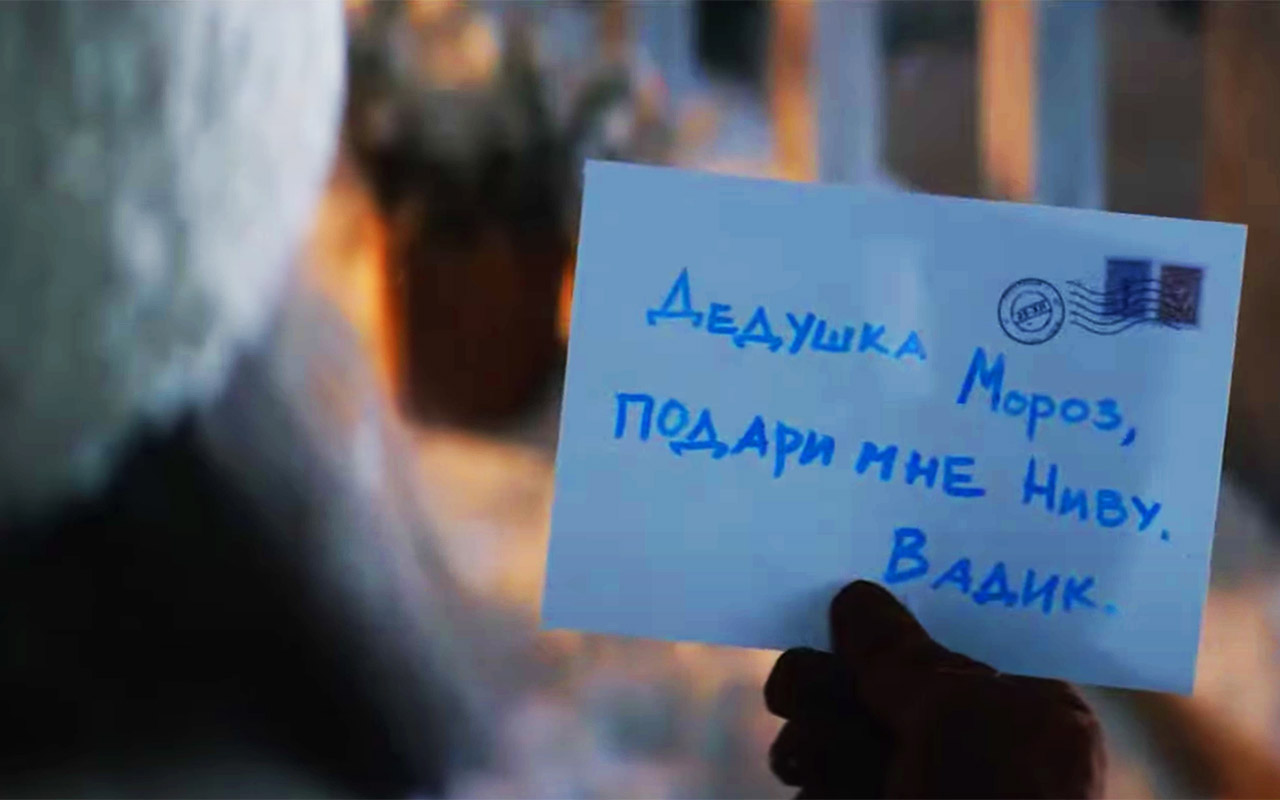 Дедушка Мороз,
подари мне Ниву.
Вадик.